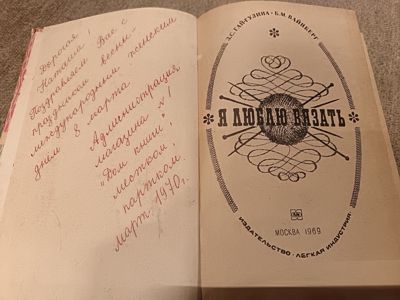 Дорогая
Наташа!
Поздравляем Вас с
праздником весны
международным женским
днём 8 марта
Администрация
магазина №1
"Дом книги"
местком
партком.
март 1970г.
З.С. ГАЙ-ГУЛИНА · Б.М. ВАЙНБЕРГ
Я ЛЮБЛЮ ВЯЗАТЬ
МОСКВА 1969
ИЗДАТЕЛЬСТВО · ЛЕГКАЯ ИНДУСТРИЯ ·